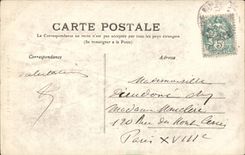 CARTE POSTALE
La Correspondance au verso n'est pas acceptée par tous les pays étrangers
(Se renseigner à la Poste)
Correspondance
Adresse
Mademoiselle
Dieudonné chez
Madame
120 Rue du Mont Cenis
Paris XVIIIe